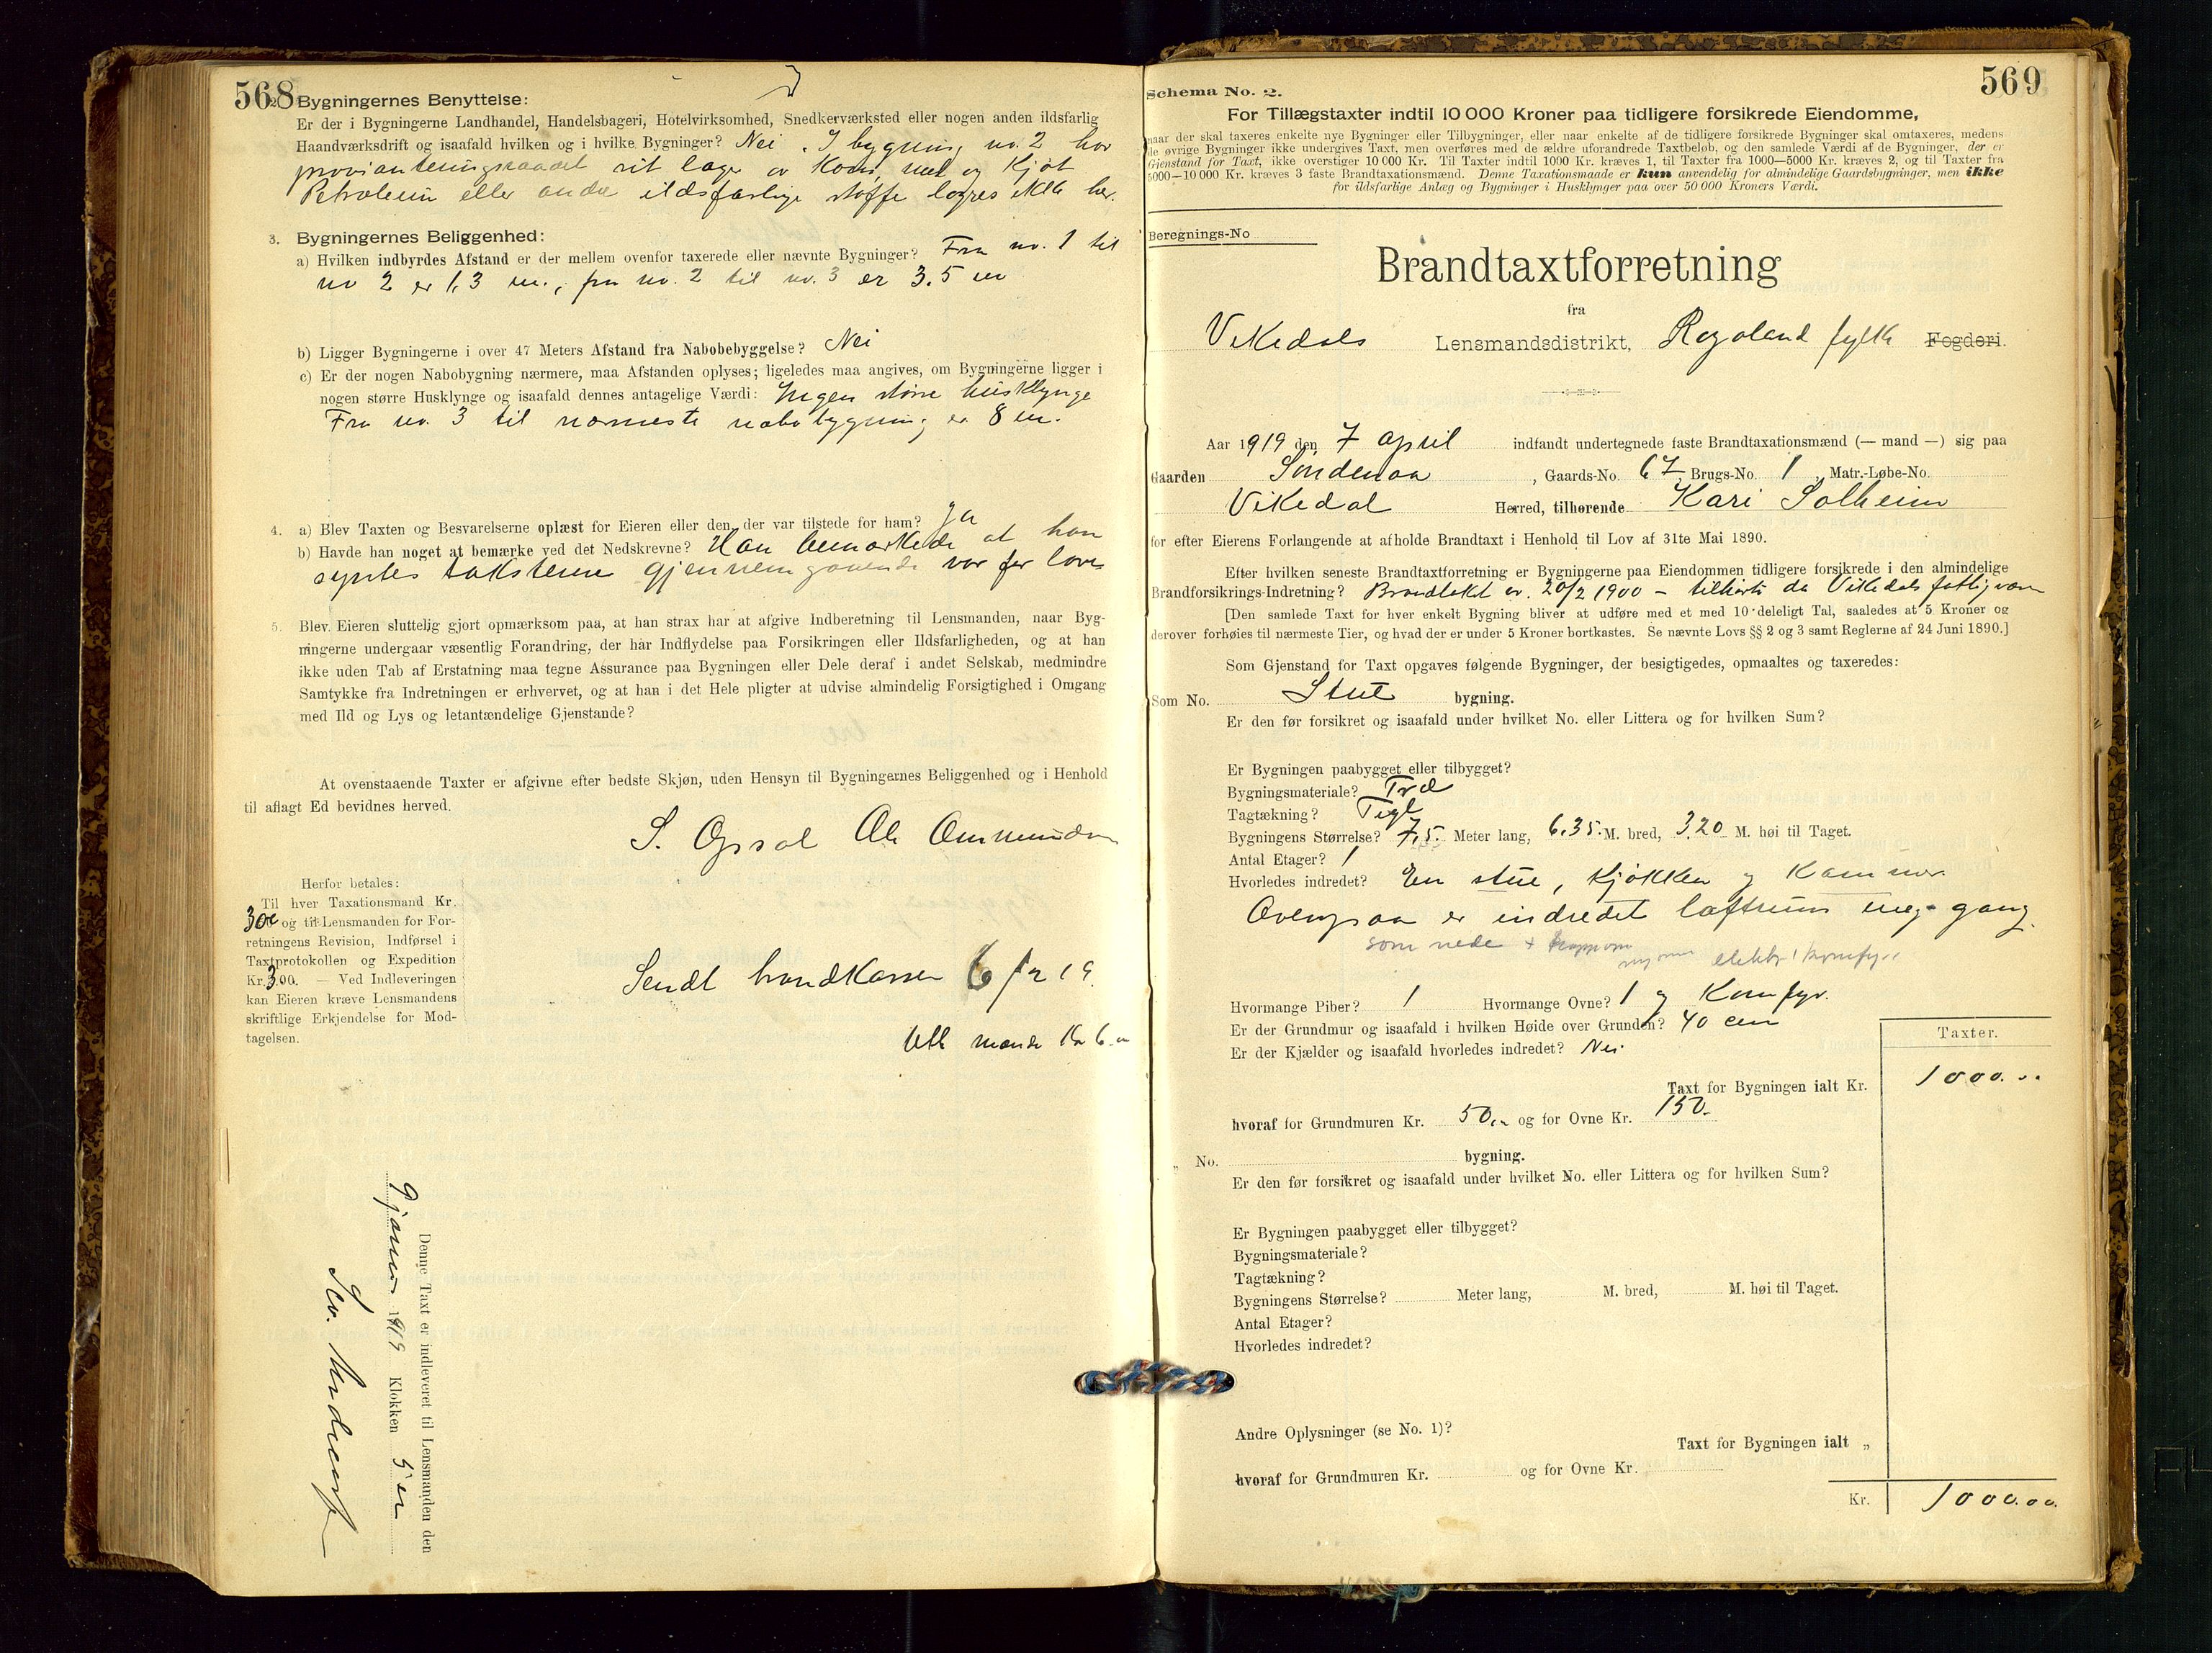 568
2. Bygningernes Benyttelse:
Er der i Bygningerne Landhandel, Handelsbageri, Hotelvirksomhed, Snedkerværksted eller nogen anden ildsfarlig
Haandværksdrift og isaafald hvilken og i hvilke Bygninger? Nei. I bygning no. 2 har
provianteringsraadet sit lager av Korn, mel og Kjøt
Petroleum eller andre ildsfarlige stoffe lagres ikke her.
3. Bygningernes Beliggenhed:
a) Hvilken indbyrdes Afstand er der mellem ovenfor taxerede eller nævnte Bygninger? Fra no. 1 til
no 2 er 1,3 m., fra no. 2 til no. 3 er 3.5 m
b) Ligger Bygningerne i over 47 Meters Afstand fra Nabobebyggelse? Nei
c) Er der nogen Nabobygning nærmere, maa Afstanden oplyses; ligeledes maa angives, om Bygningerne ligger i
nogen større Husklynge og isaafald dennes antagelige Værdi: Ingen større husklynge
Fra no. 3 til nærmeste nabobygning er 8 m.
4. a) Blev Taxten og Besvarelserne oplæst for Eieren eller den, der var tilstede for ham? Ja
b) Havde han noget at bemærke ved det Nedskrevne? Han bemærkede at han
syntes taksterne gjennemgaaende var for lave
5. Blev Eieren sluttelig gjort opmærksom paa, at han strax har at afgive Indberetning til Lensmanden, naar Byg-
ningerne undergaar væsentlig Forandring, der har Indflydelse paa Forsikringen eller Ildsfarligheden, og at han
ikke uden Tab af Erstatning maa tegne Assurance paa Bygningen eller Dele deraf i andet Selskab, medmindre
Samtykke fra Indretningen er erhvervet, og at han i det Hele pligter at udvise almindelig Forsigtighed i Omgang
med Ild og Lys og letantændelige Gjenstande?
At ovenstaaende Taxter er afgivne efter bedste Skjøn, uden Hensyn til Bygningernes Beliggenhed og i Henhold
til aflagt Ed bevidnes herved.
S. Opsal Ole Ommundsen
Herfor betales:
Til hver Taxationsmand Kr.
300 og til Lensmanden for For-
retningens Revision, Indførsel i
Taxtprotokollen og Expedition
Kr. 3.00. — Ved Indleveringen
kan Eieren kræve Lensmandens
skriftlige Erkjendelse for Mod-
tagelsen.
Sendt brandkassen 6/2 19.
Denne Taxt er indleveret til Lensmanden den
9 januar 1919 Klokken 5 em
569
Schema No. 2.
For Tillægstaxter indtil 10 000 Kroner paa tidligere forsikrede Eiendomme,
naar der skal taxeres enkelte nye Bygninger eller Tilbygninger, eller naar enkelte af de tidligere forsikrede Bygninger skal omtaxeres, medens
de øvrige Bygninger ikke undergives Taxt, men overføres med de ældre uforandrede Taxtbeløb, og den samlede Værdi af de Bygninger, der er
Gjenstand for Taxt, ikke overstiger 10 000 Kr. Til Taxter indtil 1000 Kr. kræves 1, til Taxter fra 1000—5000 Kr. kræves 2, og til Taxter fra
5000—10 000 Kr. kræves 3 faste Brandtaxationsmænd. Denne Taxationsmaade er kun anvendelig for almindelige Gaardsbygninger, men ikke
for ildsfarlige Anlæg og Bygninger i Husklynger paa over 50 000 Kroners Værdi.
Beregnings-No
Brandtaxtforretning
fra
Vikedals Lensmandsdistrikt, Rogaland fylke Fogderi.
Aar 1919 den 7 april indfandt undertegnede faste Brandtaxationsmænd (— mand —) sig paa
Gaarden Söndenaa, Gaards-No. 67 Brugs-No. 1, Matr.-Løbe-No.
Vikedal Herred, tilhørende Kari Solheim
for efter Eierens Forlangende at afholde Brandtaxt i Henhold til Lov af 31te Mai 1890.
Efter hvilken seneste Brandtaxtforretning er Bygningerne paa Eiendommen tidligere forsikrede i den almindelige
Brandforsikrings-Indretning? Brandtakst av 20/2 1900 – tilhørte da Vikedals fattigvæsen
[Den samlede Taxt for hver enkelt Bygning bliver at udføre med et med 10 deleligt Tal, saaledes at 5 Kroner og
derover forhøies til nærmeste Tier, og hvad der er under 5 Kroner bortkastes. Se nævnte Lovs §§ 2 og 3 samt Reglerne af 24 Juni 1890.]
Som Gjenstand for Taxt opgaves følgende Bygninger, der besigtigedes, opmaaltes og taxeredes:
Som No. Stue bygning.
Er den før forsikret og isaafald under hvilket No. eller Littera og for hvilken Sum?
Er Bygningen paabygget eller tilbygget?
Bygningsmateriale? Træ
Tagtækning? Tegl
Bygningens Størrelse? 7,5. Meter lang, 6.35. M. bred, 3.20 M. høi til Taget.
Antal Etager? 1
Hvorledes indredet? En stue, kjøkken og Kammer.
Ovenpaa er indredet loftrum med gang
som nede +
Hvormange Piber? 1 Hvormange Ovne? 1 og Komfyr.
Er der Grundmur og isaafald i hvilken Høide over Grunden? 40 cm
Er der Kjælder og isaafald hvorledes indredet? Nei
Taxter.
Taxt for Bygningen ialt Kr. 1000...
hvoraf for Grundmuren Kr. 50,- og for Ovne Kr. 150.
„ No. bygning.
Er den før forsikret og isaafald under hvilket No. eller Littera og for hvilken Sum?
Er Bygningen paabygget eller tilbygget?
Bygningsmateriale?
Tagtækning?
Bygningens Størrelse? Meter lang, M. bred, M. høi til Taget.
Antal Etager?
Hvorledes indredet?
Andre Oplysninger (se No. 1)?
Taxt for Bygningen ialt „
hvoraf for Grundmuren Kr. og for Ovne Kr.
Kr. 1000.00.